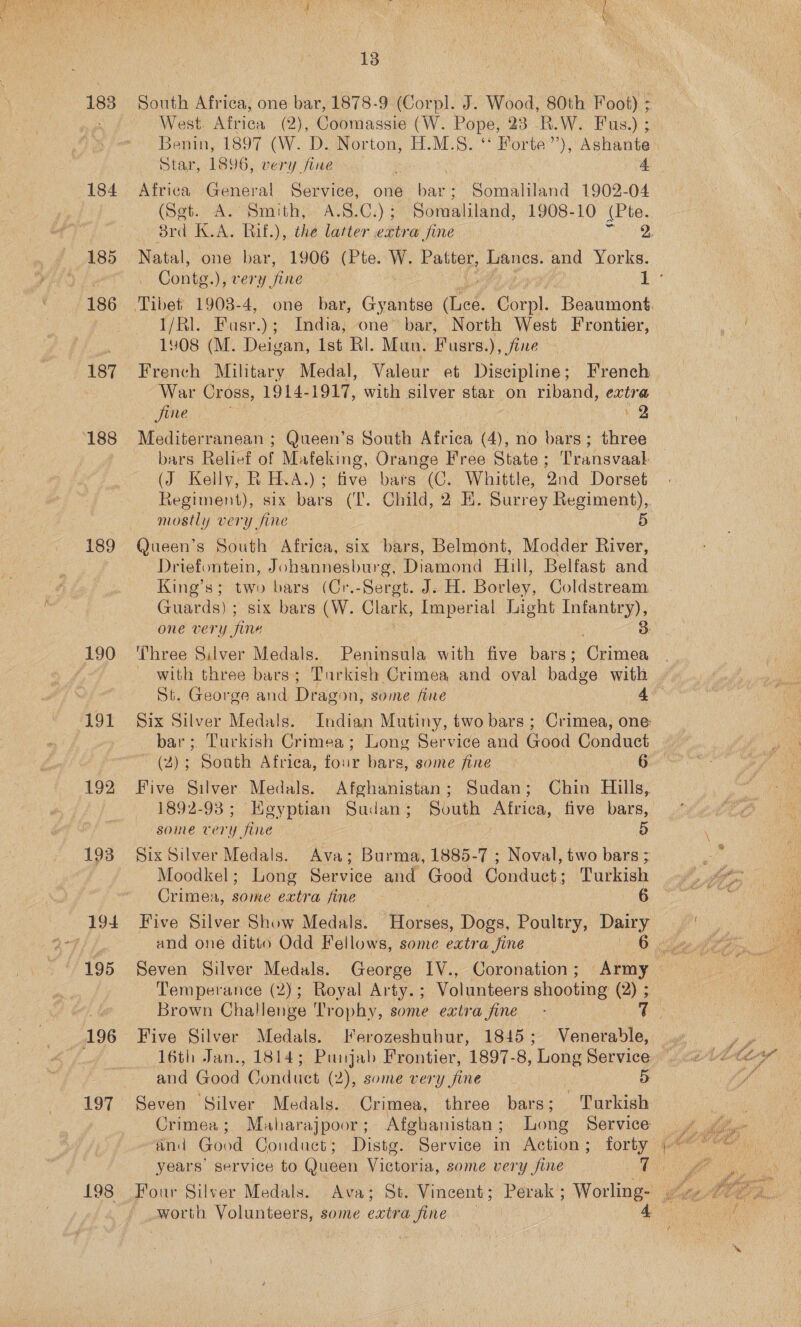 13
183 South Africa, one bar, 1878-9 (Corpl. J. Wood, 80th Foot) ;
West Africa (2), Coomassie (W. Pope, 23 R.W. Fus.) ;
Benin, 1897 (W. D. Norton, H.M.S. “ Forte”), Ashante
Star, 1896, very fine 4
184 Africa General Service, one bar; Somaliland 1902-04
(Sgt. A. Smith, A.S.C.); Somaliland, 1908-10 (Pte.
3rd K.A. Rif.), the latter extra fine 2
185 Natal, one bar, 1906 (Pte. W. Patter, Lancs. and Yorks.
Contg.), very fine 1
186 Tibet 1903-4, one bar, Gyantse (Lce. Corpl. Beaumont
1/Rl. Fusr.); India, one bar, North West Frontier,
1908 (M. Deigan, 1st Rl. Mun. Fusrs.), fine
187 French Military Medal, Valeur et Discipline; French
War Cross, 1914-1917, with silver star on riband, extra
fine 2
188 Mediterranean ; Queen’s South Africa (4), no bars; three
bars Relief of Mafeking, Orange Free State; Transvaal
(J Kelly, R.H.A.); five bars (C. Whittle, 2nd Dorset
Regiment), six bars (T. Child, 2 E. Surrey Regiment),
mostly very fine 5
189 Queen’s South Africa, six bars, Belmont, Modder River,
Driefontein, Johannesburg, Diamond Hill, Belfast and
King’s; two bars (Cr.-Sergt. J. H. Borley, Coldstream
Guards) ; six bars (W. Clark, Imperial Light Infantry),
one very fine 3
190 Three Silver Medals. Peninsula with five bars; Crimea
with three bars; Turkish Crimea and oval badge with
St. George and Dragon, some fine 4
191 Six Silver Medals. Indian Mutiny, two bars; Crimea, one
bar; Turkish Crimea; Long Service and Good Conduct
(2); South Africa, four bars, some fine 6
192 Five Silver Medals. Afghanistan; Sudan; Chin Hills,
1892-93; Egyptian Sudan; South Africa, five bars,
some very fine 5
193 Six Silver Medals. Ava; Burma, 1885-7 ; Noval, two bars ;
Moodkel; Long Service and Good Conduct; Turkish
Crimea, some extra fine 6
194 Five Silver Show Medals. Horses, Dogs, Poultry, Dairy
and one ditto Odd Fellows, some extra fine 6
195 Seven Silver Medals. George IV., Coronation; Army
Temperance (2); Royal Arty.; Volunteers shooting (2) ;
Brown Challenge Trophy, some extra fine - 7
196 Five Silver Medals. Ferozeshuhur, 1845; Venerable,
16th Jan., 1814; Punjab Frontier, 1897-8, Long Service
and Good Conduct (2), some very fine 5
197 Seven Silver Medals. Crimea, three bars; Turkish
Crimea; Maharajpoor; Afghanistan; Long Service
and Good Conduct; Distg. Service in Action; forty
years’ service to Queen Victoria, some very fine 7
198 Four Silver Medals. Ava; St. Vincent; Perak; Worling-
worth Volunteers, some extra fine 4